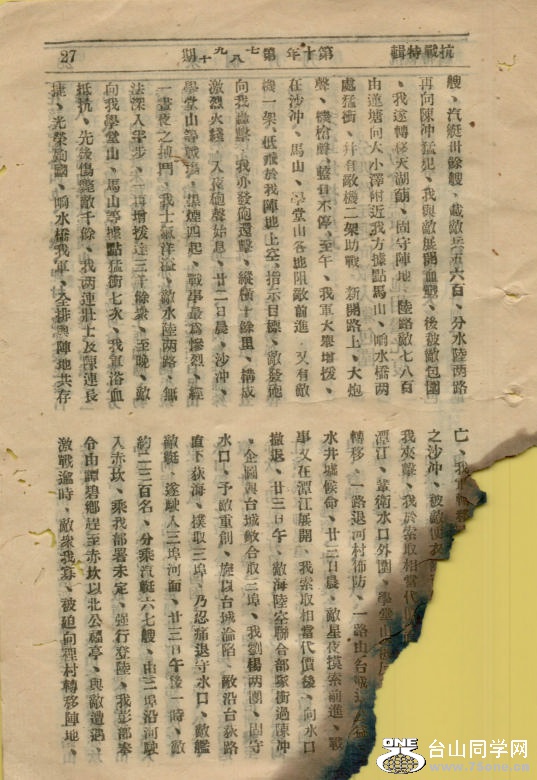 抗戰特輯
第十年第七八九十期
27
艘、汽艇卅餘艘、載敵兵五六百、分水陸两路
再向陳冲猛犯、我與敵展開血戰、後被敵包圍
、我遂轉移天湖蓢、固守陣地、陸路敵七八百
由蓮塘向大小澤附近我方據點馬山、响水橋两
處猛衝、幷有敵機二架助戰、新開路上、大炮
聲、機槍聲、整日不停、至午、我軍大舉增援、
在沙冲、馬山、學堂山各地阻敵前進、又有敵
機一架、低飛於我陣地上空、指示目標、敵發砲
向我轟擊、我亦發砲還擊、縱橫十餘里、構成
激烈火綫、入夜砲聲始息、廿二日晨、沙冲、
學堂山等戰塲、濃煙四起、戰事最爲慘烈、經
一晝夜之搏鬥、我士氣洋溢、敵水陸两路、無
法深入半步、一再增援達三千餘衆、至晚、敵
向我學堂山、馬山等據點猛衝七次、我軍浴血
抵抗、先後傷斃敵千餘、我两連壯士及陳連長
捷、光榮殉國、响水橋我軍、全排與陣地共存
亡、我軍轉
之沙冲、被敵便衣
我夾擊、我於索取相當代
潭江、靠衛水口外圍、學堂山
轉移、一路退河村佈防、一路由台城
水井墟候命、廿二日晨、敵星夜摸索前進、戰
事又在潭江展開、我索取相當代價後、向水口
撤退、廿三日午、敵海陸空聯合部隊衝過陳冲
、企圖與台城敵合取三埠、我劉楊两團、固守
水口、予敵重創、旋以台城淪陷、敵沿台荻路
直下荻海、撲取三埠、乃忍痛退守水口、敵艦
敵艇、遂駛入三埠河面、廿三日午後一時、敵
約二三百名、分乘汽艇六七艘、由三埠沿河駛
入赤坎、乘我部署未定、强行登陸、我彭部奉
令由譚碧鄉趕至赤坎以北公福亭、與敵遭遇、
激戰逾時、敵衆我寡、被迫向裡村轉移陣地、
ONE
台山同学网
www.1sone.cn